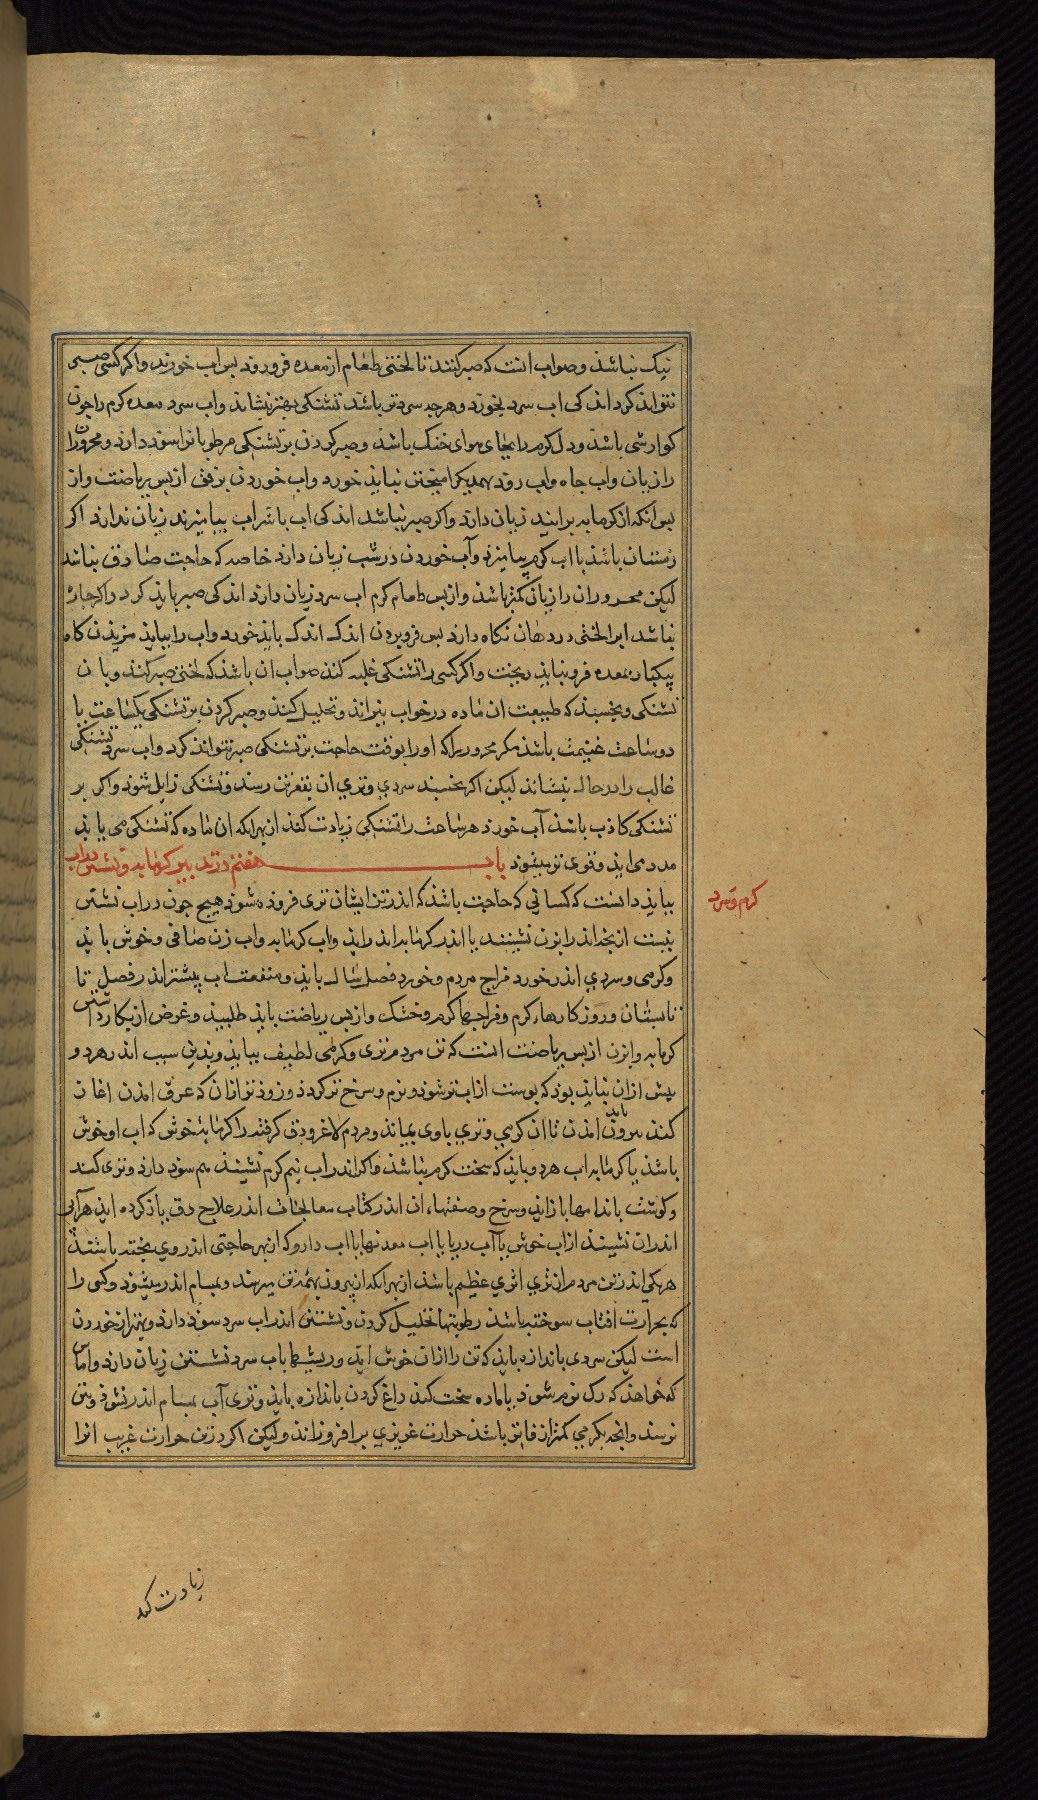 نیک نباشذ و صواب انست که صبر کنند تا لختی طعام از معده فرو روذ بس اب خورند و اکر کسی صبر
نتواند کرد اندکی اب سرد بخورد و هر چند سردتر باشد تشنکی بهتر نشاند و اب سرد معده کرم را چون
کوارشی باشد و دل کرم را بجای هوای خنک باشد و صبر کردن بر تشنکی مرطوبانرا سود دارد و محرورانرا
را زیان و اب جاه و اب رود بهمدیکر امیختن نباید خورد و اب خوردن بر فق از بس ریاضت و از
بس انکه از کرمابه برایند زیان دارد و اکر صبر نباشد اندکی اب باشراب بیامیزند زیان ندارد اکر
زمستان باشد با اب کرم بیامیزند و آب خوردن در شب زیان دارد خاصه که حاجت صادق نباشد
لیکن محروران را زیان کمتر باشذ و از بس طعام کرم اب سرد زیان دارد اندکی صبر باید کرد و اکر چاره
نباشد اب را لختی در دهان نکاه دارند بس فرو بردن اندک اندک باید خورد و اب را بباید مزیدن که اب
بیکبار بمعده فرو نباید ریخت و اکر کسی را تشنکی غلبه کند صواب ان باشذ که لختی صبر کند و با ن
تشنکی و بخسبند که طبیعت ان ماده در خواب بپزاند و تحلیل کند و صبر کردن بر تشنکی یکساعت یا
دو ساعت غنیمت باشد مکر محروریرا که اورا بوقت حاجت بر تشنکی صبر نتواند کرد و اب سرد تشنکی
غالب را در حال بنشاند لیکن اکر بخسبند سردی و تری ان بقعر تن رسد و تشنکی زایل شود و اکر بر
تشنکی کاذب باشد آب خورد هر ساعت را تشنکی زیادت کند از بهر انکه ان ماده که تشنکی می یابد
مدد می ابد و قوی تر میشود باب هفتم در تدبیر کرمابه و نشستن در اب
کرم و سرد
بباید دانست که کسانی که حاجت باشد که اندر تن ایشان تری فزوده شود هیچ چون در اب نشستن
نیست از بخه اندر ابزن نشینند یا اندر کرمابه اندر ایذ و اب کرمابه و اب زن صافی و خوش باید
و کرمی و سردی اندر خورد مزاج مردم و خورد فصل سال باید و منفعت اب بیشتر اندر فصل تا
تابستان و روزکارهاء کرم و مزاجها کرم و خشک و از بس ریاضت باید طلبیذ و غرض از بکار داشتن
کرمابه و ابزن از بس ریاضت انست که تن مردم تری و کرمی لطیف بیابد و بدین سبب اندر هر دو
بیش از ان نباید بود که بوست از اب تر شود و نرم و سرخ تر کردد و زودتر از ان که عرق امدن اغاز
کند بیرون باید امدن تا ان کرمی و تری باوی بماند و مردم لاغر و دق کرفته را کرمابه خوش که اب او خوش
باشد یا کرمابه اب هر دو باید که سخت کرم نباشد و اکر اندر اب نیم کرم نشینند هم سود دارد و تری کند
و کوشت باندامها باز اید و شرح و صفتهاء ان اندر کتاب معالجات اندر علاج دق یاد کرده اید هر آبی
اندر ان نشینند از اب خوش یا آب دریا یا اب معدنها یا اب دارو که از بهر حاجتی اندر وی بخته باشند
هر یکی اندر تن مردم را تری اثری عظیم باشد از بهر انکه از بیرون بهمه تن میرسد و بمسام اندر میشود و کسی را
که بحرارت افتاب سوخته باشد رطوبتها تحلیل کردن و نشستن اندر اب سرد سود دارد و بهتر از خوردن
است لیکن سردی باندازه باید که تن را از ان خوش اید و ریشها باب سرد نشستن زیان دارد و اماس
که خواهذ که رک نرم شوذ یا ماده سخت کند داغ کردن باندازه باید و تری آب بمسام اندر نشود و بتن
نرسد و انچه بکرمی کمتر از فاتر باشد حرارت غریزی بر افروزاند و لیکن اکر در تن حرارت غریب انرا
زیادت کند